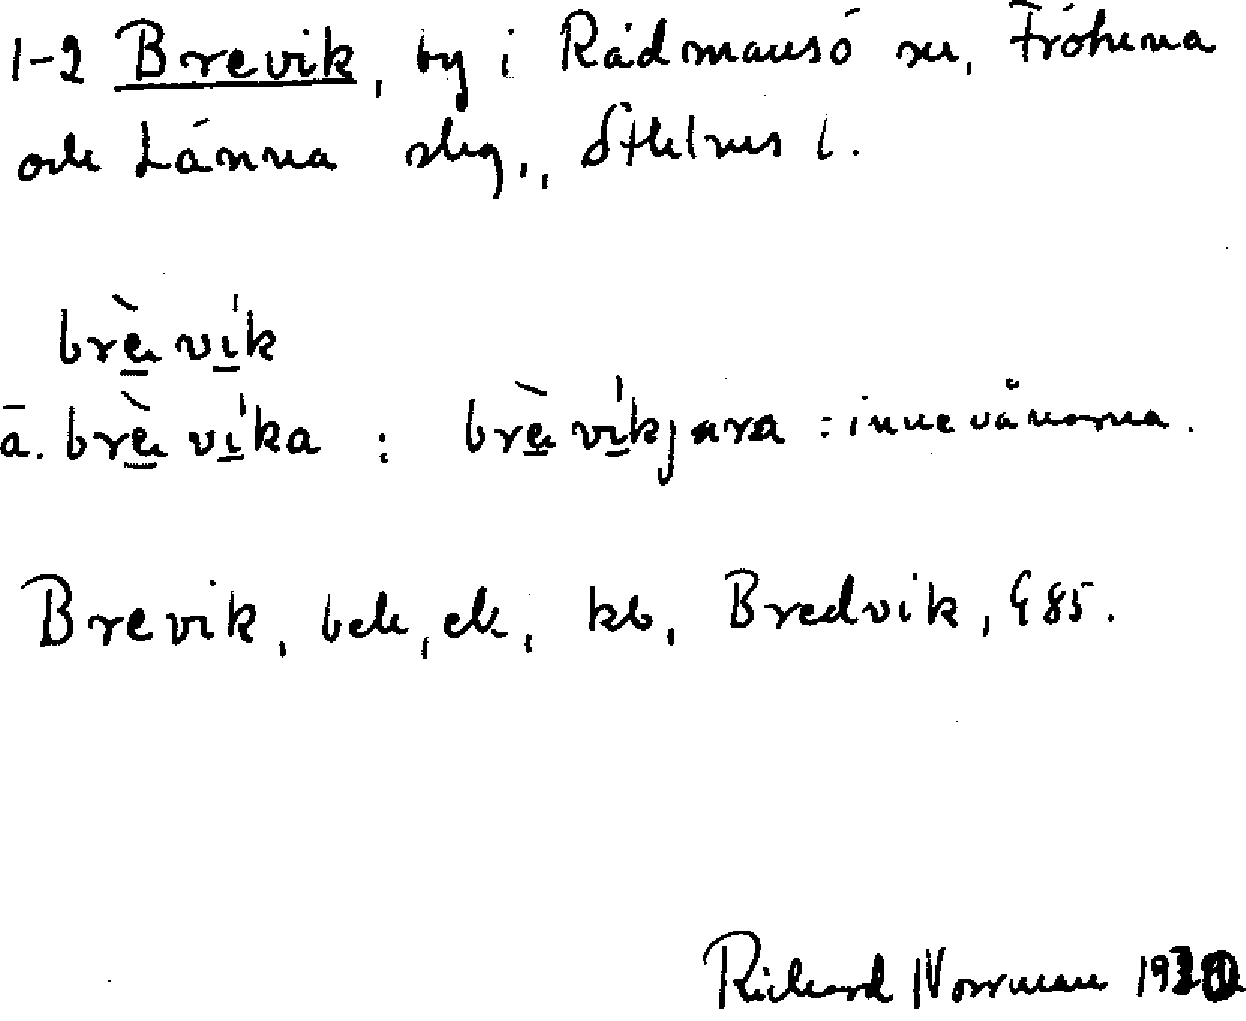 1-2 Brevik, by i Rådmansö sn, Frötuna
och Länna skg., Sthlms l.
brèvik
ā. brèvika : brèvikjara : innevånarna.
Brevik, bek, ek, kb, Bredvik, G 85.
Richard Norrman